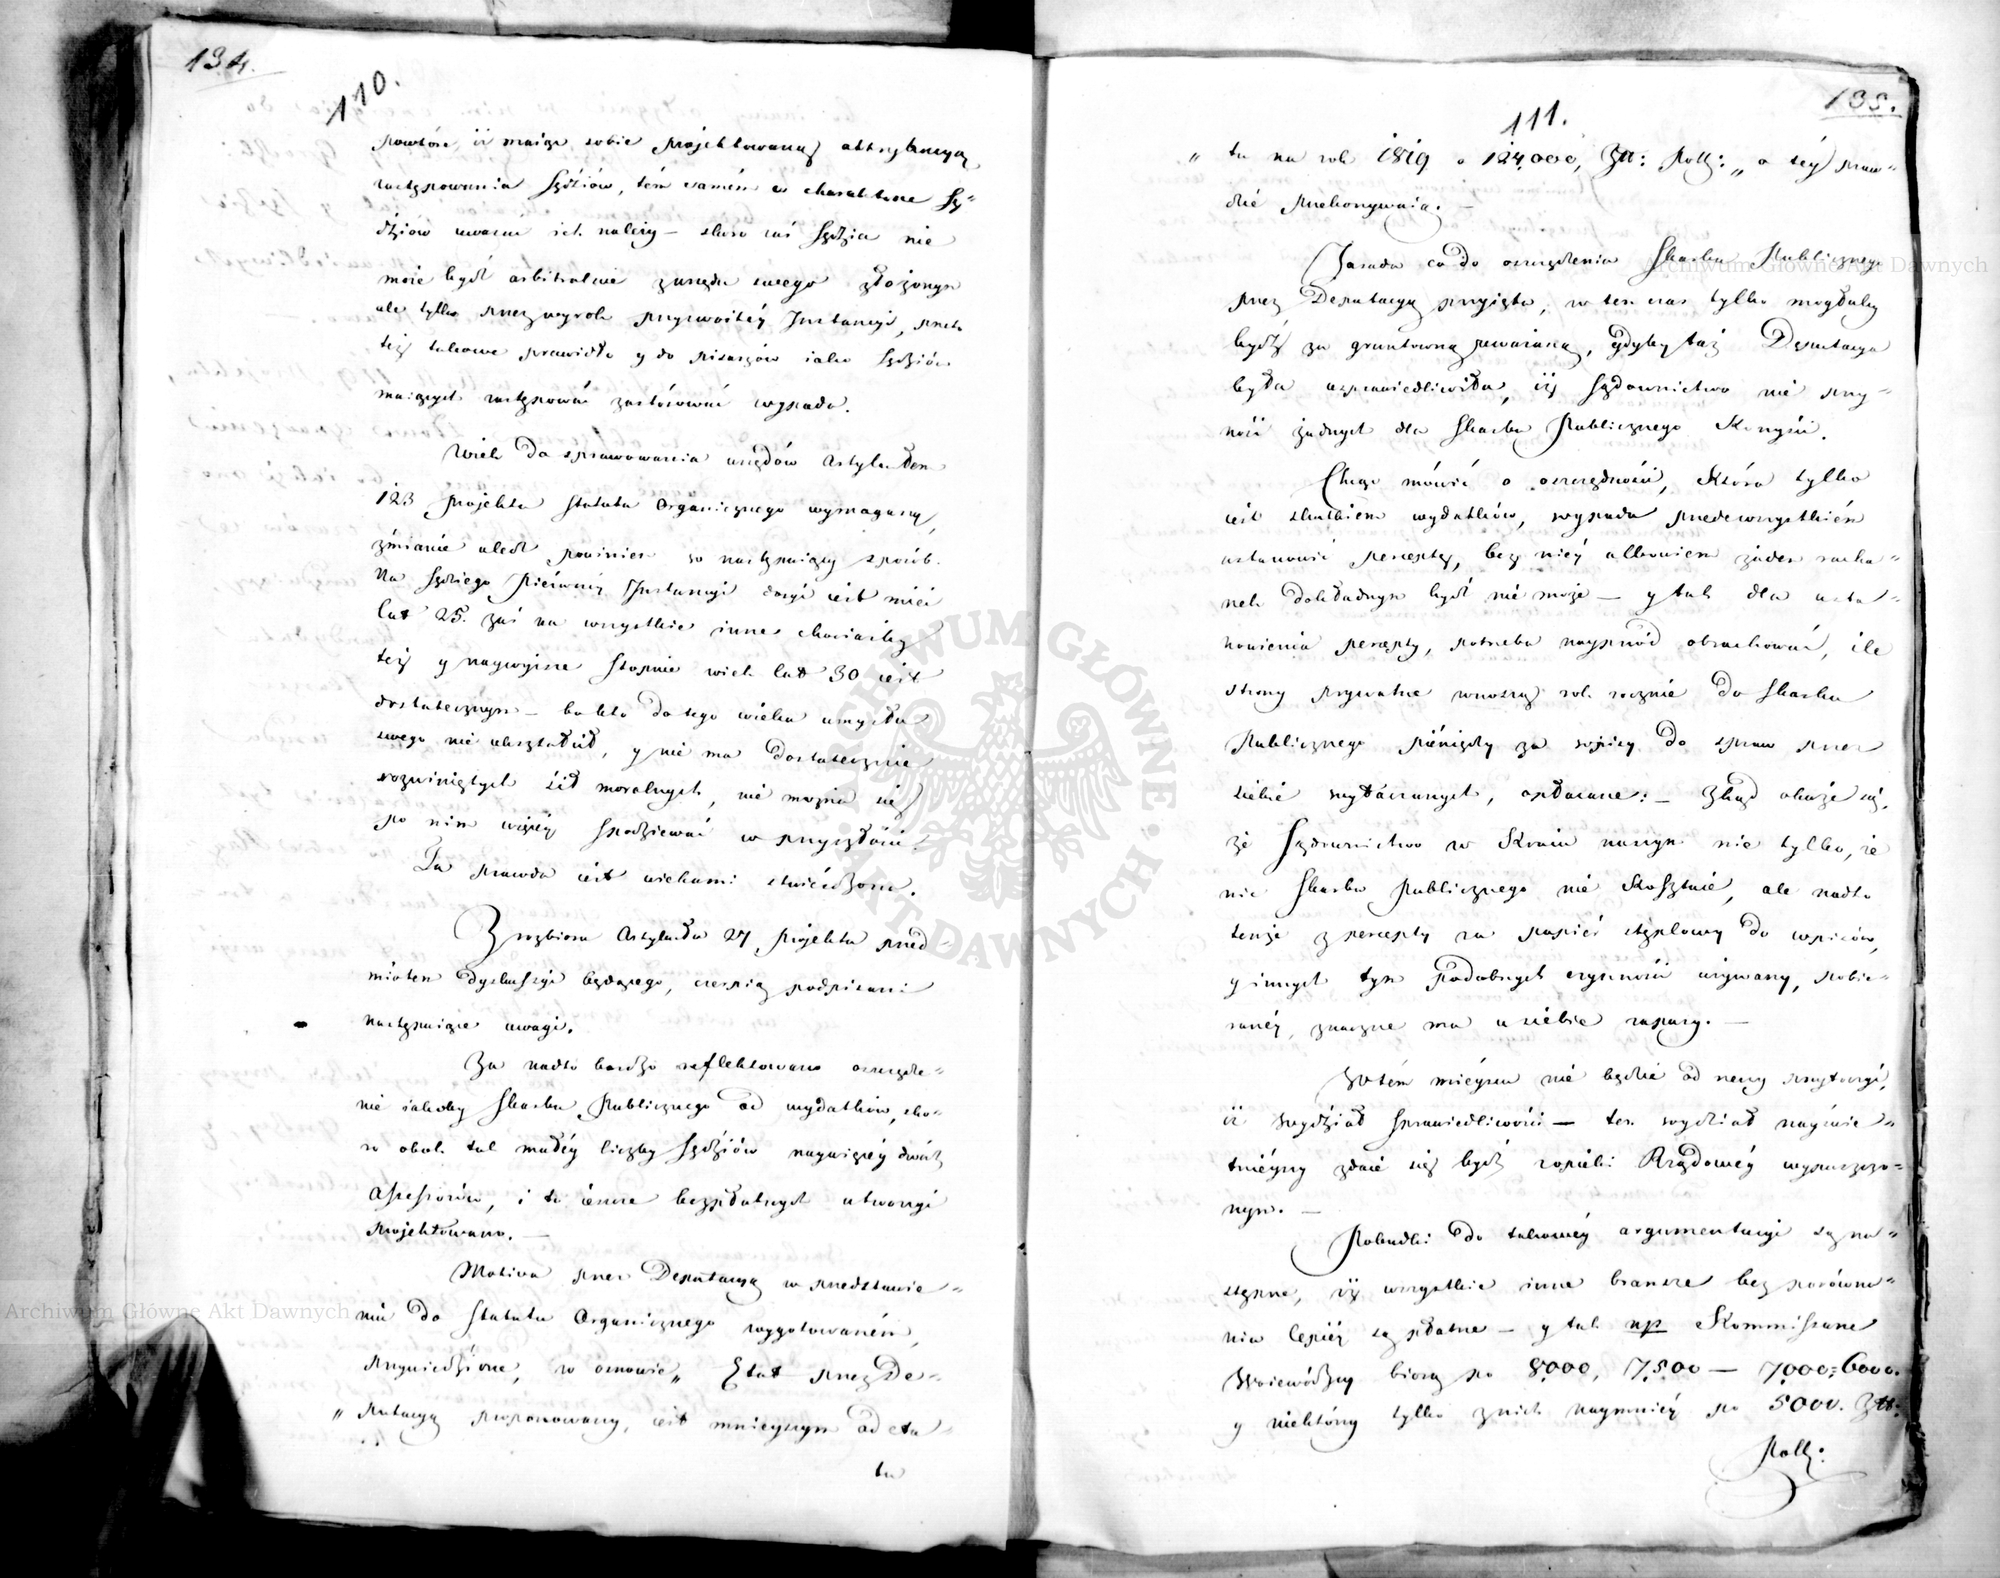 134.
110.
powtóre, iż maiąc sobie projektowaną attrybucyą
zastępowania Sędziów, tém samém w charakterze Sę-
dziów uważać ich należy – skoro zaś Sędzia nie
może bydź arbitralnie z urzędu swego złożonym
ale tylko przez wyrok przyzwoitéy Instancyi, przeto
też takowe prawidło y do Pisarzów iako Sędziów
maiących zastępować zastósować wypada.
Wiek do sprawowania urzędów Artykułem
123 Projektu Statutu Organicznego wymagany,
zmianie uledz powinien w następuiący sposób.
Na Sędziego Piérwszéy Instancyi dosyć iest mieć
lat 25. zaś na wszystkie inne chociażby
też y naywyższe stopnie wiek lat 30 iest
dostatecznym – bo kto do tego wieku umysłu
swego nie ukształcił, y nie ma dostatecznie
rozwiniętych sił moralnych, nie można się
po nim więcéy spodziewać w przyszłości.
Ta prawda iest wiekami stwierdzona.
Z rozbioru Artykułu 27 Projektu przed-
miotem dyskussyi będącego, czerpią podpisani
następuiące uwagi.
Za nadto bardzo reflektowano oszczędze-
nie iakoby Skarbu Publicznego od wydatków, sko-
ro obok tak małéy liczby Sędziów naywięcéy dwóch
Assessorów, i to ieszcze bezpłatnych utworzyć
projektowano. —
Motiva przez Deputacyą w przedstawie-
niu do Statutu Organicznego wygotowaném,
przywiedzione, w osnowie „ Etat przez De-
„ putacyą proponowany, iest mnieyszym od eta-
tu
Archiwum Główne Akt Dawnych
135.
111.
„ tu na rok 1819 o 124,000, Zł: Pol: „ o téy praw-
dzie przekonywaią. —
Zasada co do oszczędzenia Skarbu Publicznego
przez Deputacyą przyięta, w ten czas tylko mogłaby
bydź za gruntowną uważaną, gdyby taż Deputacya
była usprawiedliwiła, iż Sądownictwo nie przy-
nosi żadnych dla Skarbu Publicznego Korzyści.
Chcąc mówić o oszczędności, która tylko
iest skutkiem wydatków, wypada przedewszystkiém
ustanowić perceptę, bez niéy albowiem żaden rachu-
nek dokładnym bydź nie może — y tak dla usta-
nowienia percepty, potrzeba nayprzód obrachować, ile
strony prywatne wnoszą rok rocznie do Skarbu
Publicznego pieniędzy za wpisy do spraw przez
siebie wytaczanych, opłacane: – Zkąd okaże się,
że Sądownictwo w Kraiu naszym nie tylko, że
nic Skarbu Publicznego nie kosztuie, ale nadto
tenże z percepty za papiér stęplowy do wpisów,
y innych tym podobnych czynności używany, pobie-
ranéy, znaczne ma u siebie zapasy. —
W tém mieyscu nie będzie od rzeczy przytoczyć,
iż Wydział Sprawiedliwości — ten wydział nayświe-
tnieyszy zdaie się bydź z opieki Rządowéy wypuszczo-
nym. —
Pobudki do takowéy argumentacyi są na-
stępne, iż wszystkie inne branże bez porówna-
nia lepiéy są płatne — y tak np Kommissarze
Woiewódzcy biorą po 8000, 7,500 — 7000: 6000.
y niektórzy tylko z nich naymniéy po 5000. Zł:
Pols:
Archiwum Główne Akt Dawnych
ARCHIWUM GŁÓWNE · AKT DAWNYCH ·